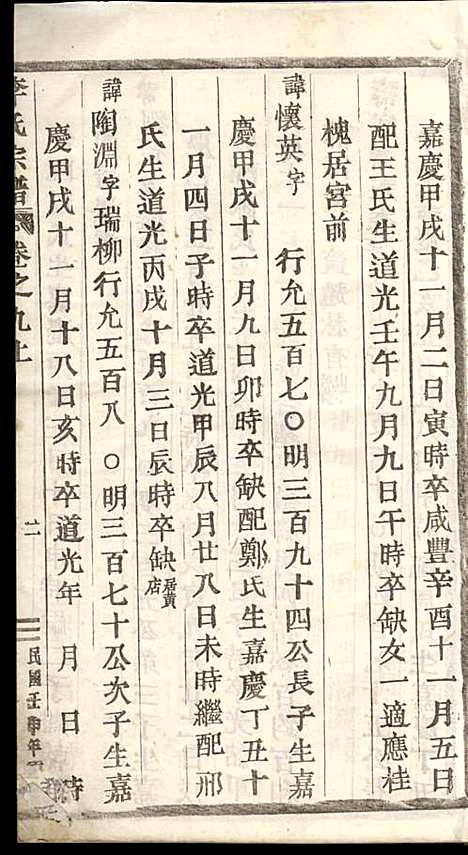 嘉慶甲戌十一月二日寅時卒咸豐辛酉十一月五日
配王氏生道光壬午九月九日午時卒缺女一適應桂
槐居宮前
諱懷英字 行允五百七〇明三百九十四公長子生嘉
慶甲戌十一月九日卯時卒缺配鄭氏生嘉慶丁丑十
一月四日子時卒道光甲辰八月廿八日未時繼配邢
氏生道光丙戌十月三日辰時卒缺居黃店
諱陶淵字瑞柳行允五百八〇明三百七十公次子生嘉
慶甲戌十一月十八日亥時卒道光年 月 日 時
李氏宗譜 卷之九上 二 民國壬申年